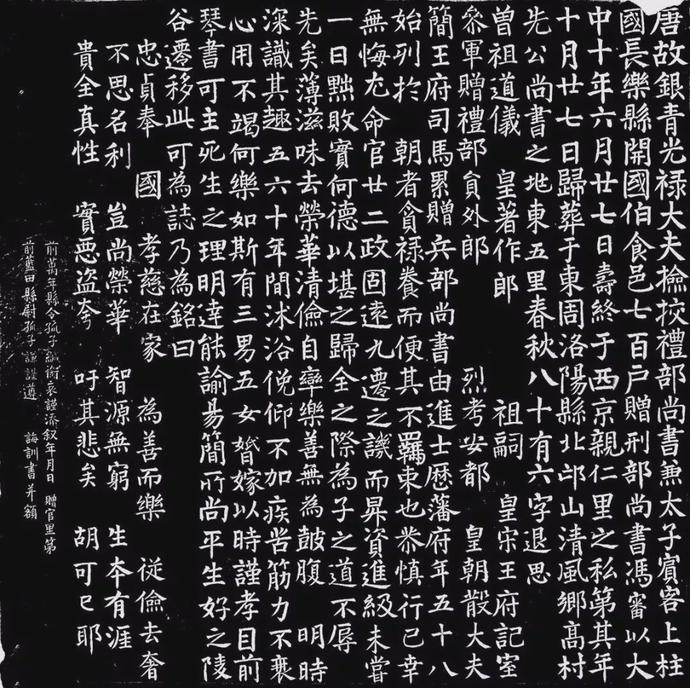 唐故銀青光禄大夫撿挍禮部尚書兼太子賓客上柱
國長樂縣開國伯食邑七百戸贈刑部尚書馮審以大
中十年六月廿七日壽終于西京親仁里之私第其年
十月廿七日歸葬于東周洛陽縣北邙山清風鄉高村
先公尚書之地東五里春秋八十有六字退思
曾祖道儀 皇著作郎 祖嗣 皇宋王府記室
參軍贈禮部員外郎 烈考安都 皇朝散大夫
簡王府司馬累贈兵部尚書由進士歷藩府年五十八
始列於 朝者貪禄養而便其不羈束也恭慎行己幸
無悔尤命官廿二政固遠九遷之譏而昇資進級未嘗
一日黜敗實何德以堪之歸全之際為子之道不辱
先矣薄滋味去榮華清儉自率樂善無為鼓腹 明時
深識其趣五六十年間沐浴俛仰不加疾苦筋力不衰
心用不竭何樂如斯有三男五女婚嫁以時謹孝目前
琴書可主死生之理明達能諭易簡所尚平生好之陵
谷遷移此可為誌乃為銘曰
忠貞奉 國 孝慈在家 為善而樂 從儉去奢
不思名利 豈尚榮華 智源無窮 生夲有涯
貴全真性 實惡盜夸 吁其悲矣 胡可已耶
前萬年縣令孤子緘銜哀謹添叙年月日 贈官里第
前藍田縣尉孤子謹遵 誨訓書并額